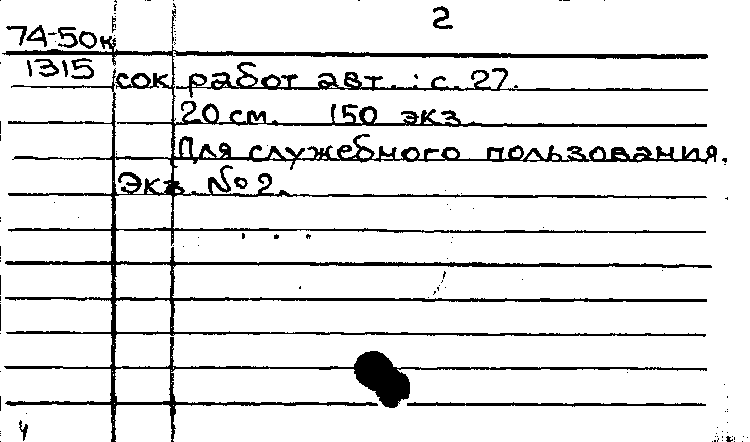 2
74-50к
1315
сок работ авт.: с. 27.
20 см. 150 экз.
Для служебного пользования.
Экз. № 2.